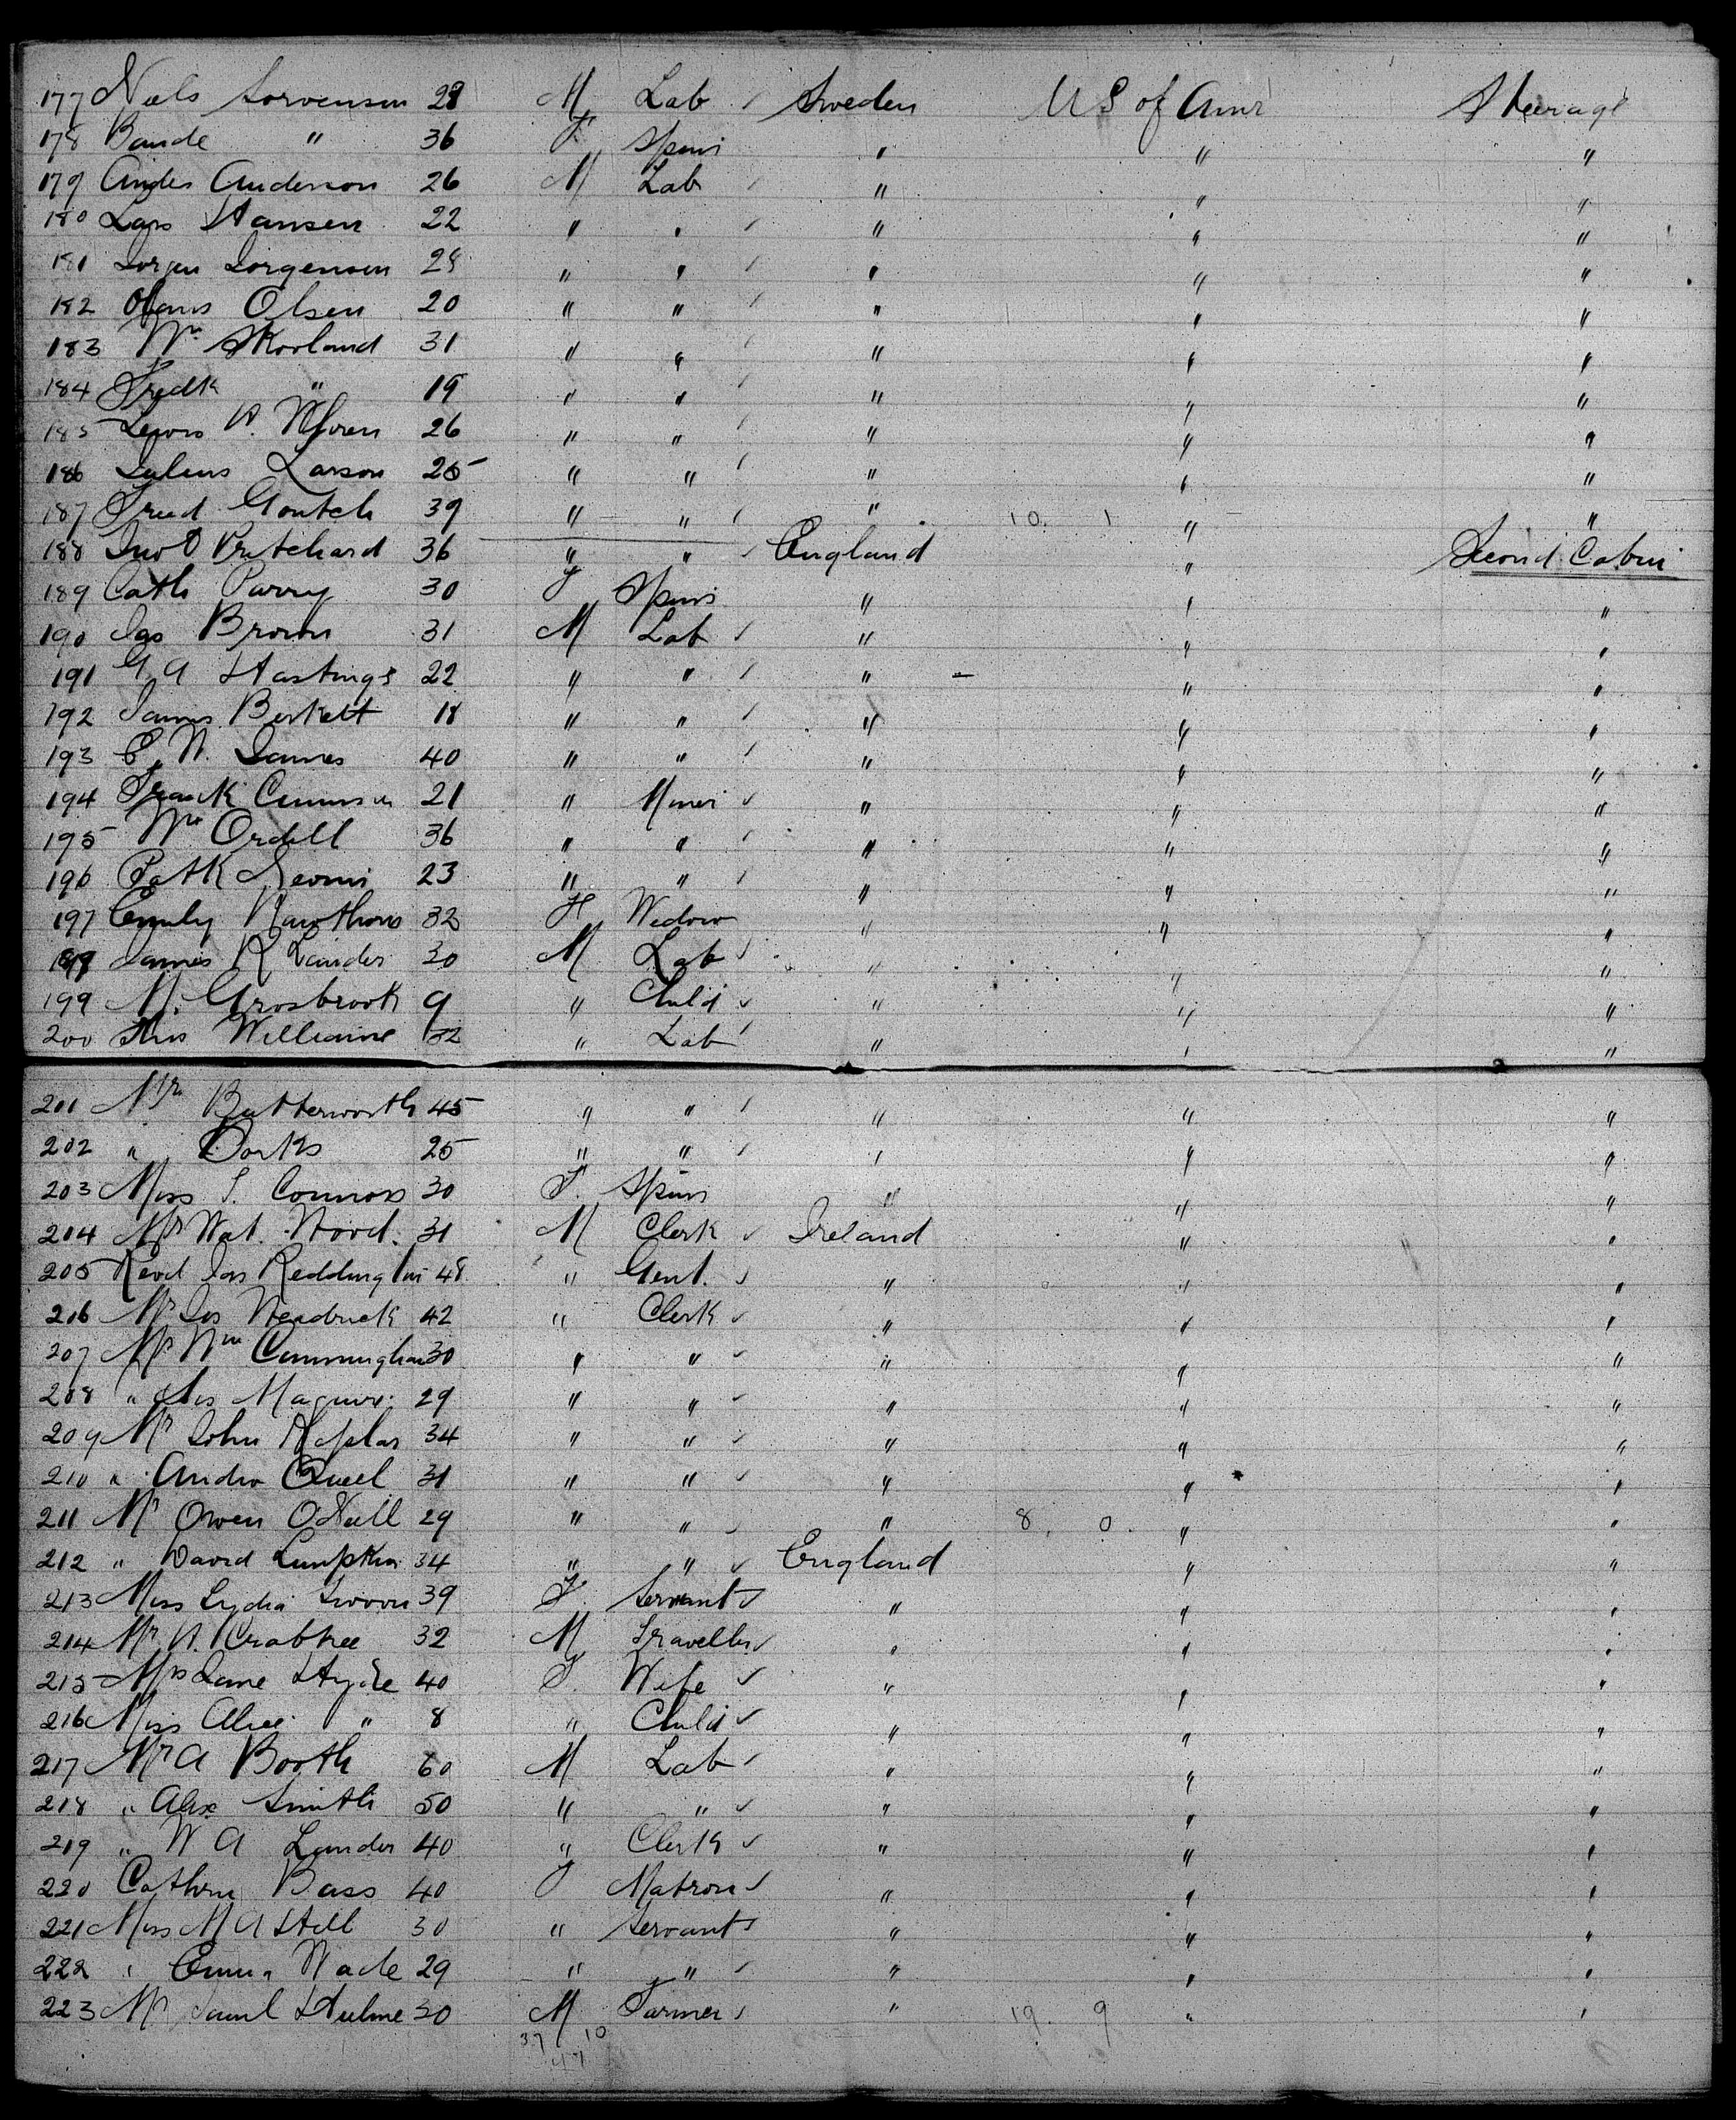 177 Niels Sorvensen 28 M Lab Sweden U S of Amr Steerage
178 Bande " 36 F Spins " " "
179 Andes Anderson 26 M Lab " " "
180 Lars Hansen 22 " " " " "
181 Jorjen Jorgensen 28 " " " " "
182 Hans Olsen 20 " " " " "
183 Wm Skorland 31 " " " " "
184 Fredk " 19 " " " " "
185 Lewis A. 26 " " " " "
186 Julius Larson 25 " " " " "
187 Fred Goutch 39 " " " 10. 1 " "
188 Jno O Pritchard 36 " " England " Second Cabin
189 Cath Parry 30 F Spins " " "
190 Jas Brown 31 M Lab " " "
191 G A Hastings 22 " " " " "
192 James Birkett 18 " " " " "
193 E. W. James 40 " " " " "
194 Frank 21 " Miner " " "
195 Wm Ordell 36 " " " " "
196 Patk 23 " " " " "
197 Emily Hawthorn 32 F Widow " " "
198 James R Lander 30 M Lab " " "
199 M. Grosbrook 9 " Child " " "
200 Thos Williams 32 " Lab " " "
201 Mr Butterworth 45 " " " " "
202 " Darks 25 " " " " "
203 Miss S. Connors 30 F. Spins " " "
204 Mr Wat. Wood. 31 M Clerk Ireland " "
205 Revd Jas Reddington 48 " Gent. " " "
206 Mr Jos Headrick 42 " Clerk " " "
207 Mr Wm Cunningham 30 " " " " "
208 " Jas Maguire 29 " " " " "
209 Mr John 34 " " " " "
210 " Andw Queel 31 " " " " "
211 Mr Owen O'Neill 29 " " " 8. 0. " "
212 " David Lumpkin 34 " " England " "
213 Miss Lydia 39 F. Servant " " "
214 Mr A. Crabtree 32 M Traveller " " "
215 Mrs Jane Hyde 40 F. Wife " " "
216 Miss Alice " 8 " Child " " "
217 Mr A Booth 60 M Lab " " "
218 " Alex Smith 50 " " " " "
219 " W A Lander 40 " Clerk " " "
220 Cathrn Bass 40 F Matron " " "
221 Miss M A Hill 30 " Servant " " "
222 " Emma Wade 29 " " " " "
223 Mr Saml Hulme 30 M Farmer " 19 9 " "
37 10
47